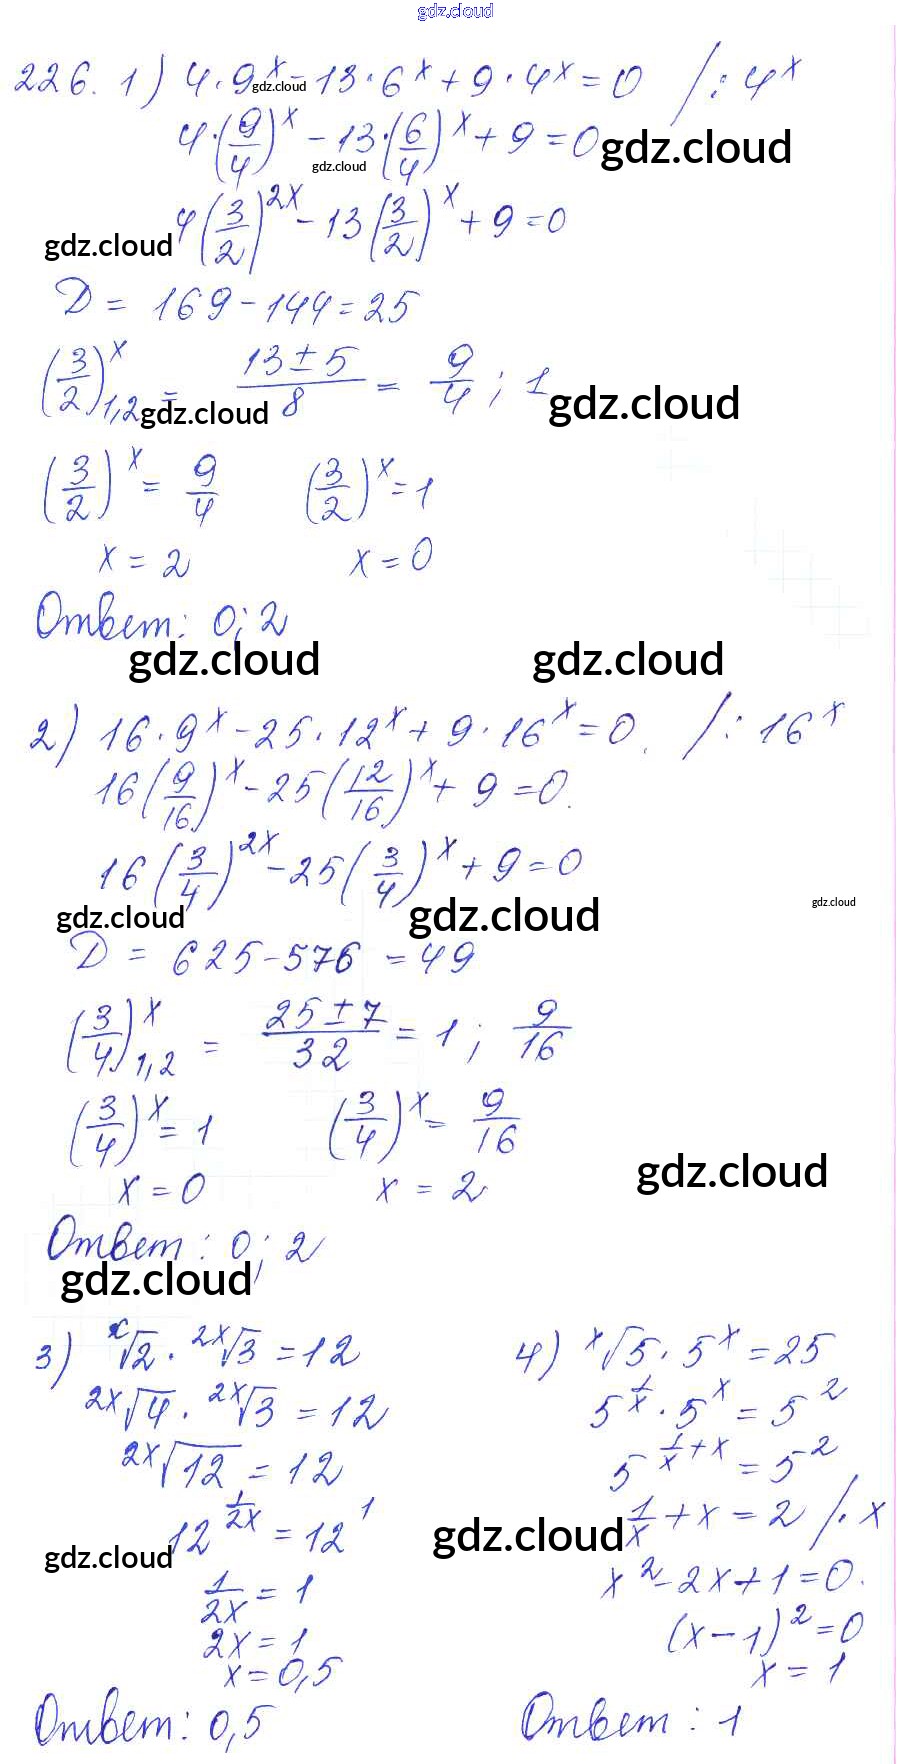 gdz.cloud
226. 1) 4·9^x - 13·6^x + 9·4^x = 0 /:4^x
gdz.cloud
4·(9/4)^x - 13·(6/4)^x + 9 = 0
gdz.cloud
gdz.cloud
4(3/2)^2x - 13(3/2)^x + 9 = 0
gdz.cloud
D = 169 - 144 = 25
(3/2)^x 1,2 = (13 ± 5)/8 = 9/4 ; 1
gdz.cloud
gdz.cloud
(3/2)^x = 9/4 (3/2)^x = 1
x = 2 x = 0
Ответ: 0; 2
gdz.cloud
gdz.cloud
2) 16·9^x - 25·12^x + 9·16^x = 0. /:16^x
16(9/16)^x - 25(12/16)^x + 9 = 0.
16(3/4)^2x - 25(3/4)^x + 9 = 0
gdz.cloud
gdz.cloud
gdz.cloud
D = 625 - 576 = 49
(3/4)^x 1,2 = (25 ± 7)/32 = 1 ; 9/16
(3/4)^x = 1 (3/4)^x = 9/16
gdz.cloud
x = 0 x = 2
Ответ: 0; 2
gdz.cloud
3) ^x√2 · ^2x√3 = 12
^2x√4 · ^2x√3 = 12
^2x√12 = 12
12^(1/2x) = 12^1
gdz.cloud
1/2x = 1
2x = 1
x = 0,5
Ответ: 0,5
4) ^x√5 · 5^x = 25
5^(1/x) · 5^x = 5^2
5^(1/x + x) = 5^2
1/x + x = 2 /·x
gdz.cloud
x^2 - 2x + 1 = 0.
(x - 1)^2 = 0
x = 1
Ответ: 1